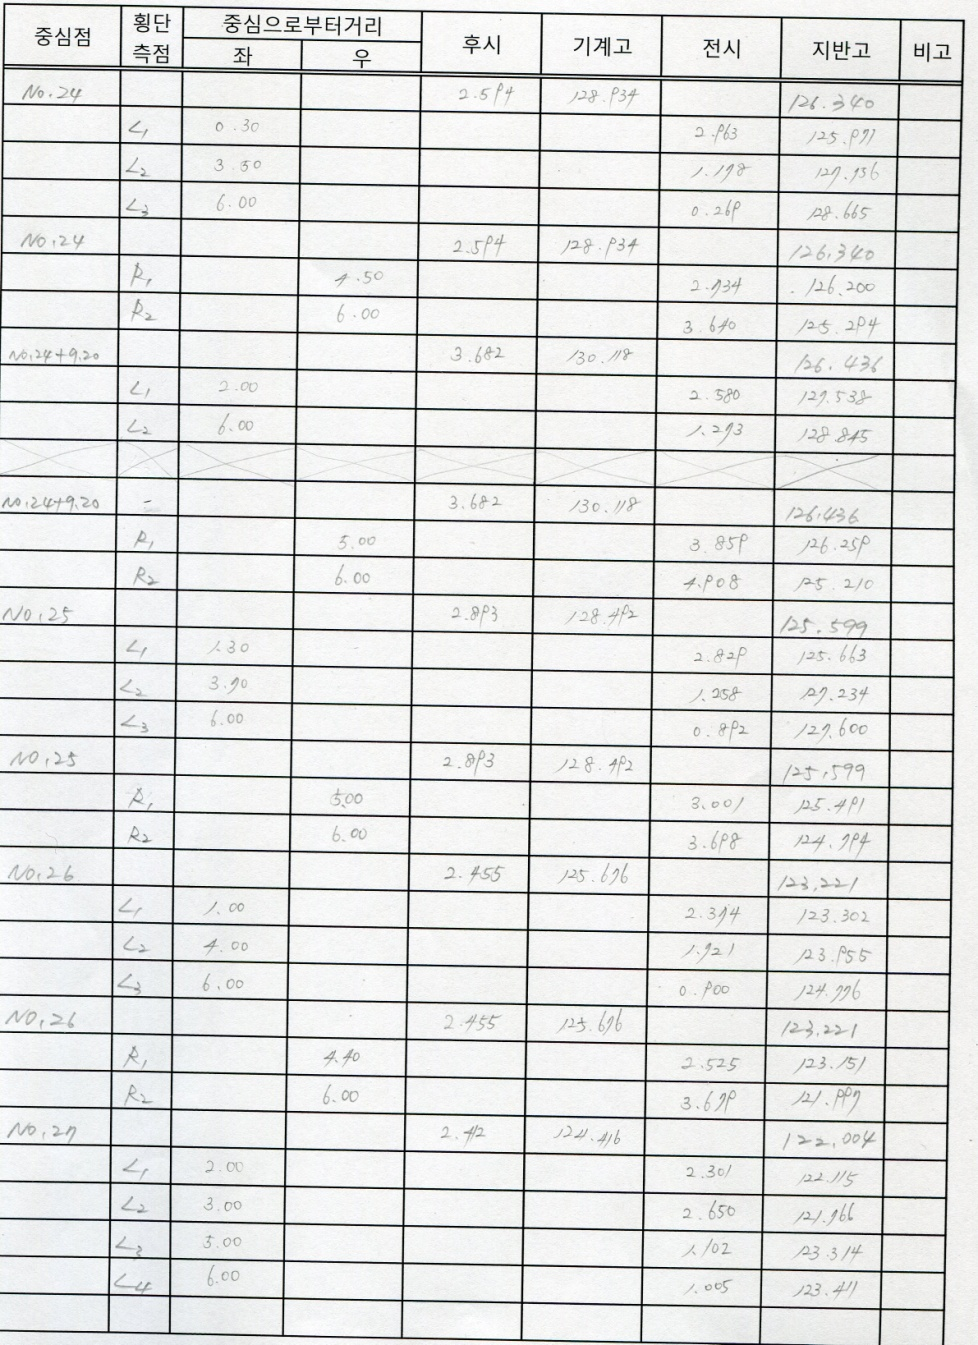 중심점 횡단측점 중심으로부터거리 후시 기계고 전시 지반고 비고
좌 우
No.24 2.594 128.934 126.340
L1 0.30 2.963 125.971
L2 3.50 1.178 127.756
L3 6.00 0.269 128.665
No.24 2.594 128.934 126.340
R1 4.50 2.734 126.200
R2 6.00 3.640 125.294
No.24+9.20 3.682 130.118 126.436
L1 2.00 2.580 127.538
L2 6.00 1.273 128.845
No.24+9.20 - 3.682 130.118 126.436
R1 5.00 3.859 126.259
R2 6.00 4.908 125.210
No.25 2.893 128.492 125.599
L1 1.30 2.829 125.663
L2 3.70 1.258 127.234
L3 6.00 0.892 127.600
No.25 2.893 128.492 125.599
R1 5.00 3.001 125.491
R2 6.00 3.698 124.794
No.26 2.455 125.676 123.221
L1 1.00 2.374 123.302
L2 4.00 1.721 123.955
L3 6.00 0.900 124.776
No.26 2.455 125.676 123.221
R1 4.40 2.525 123.151
R2 6.00 3.679 121.997
No.27 2.412 124.416 122.004
L1 2.00 2.301 122.115
L2 3.00 2.650 121.766
L3 5.00 1.102 123.314
L4 6.00 1.005 123.411